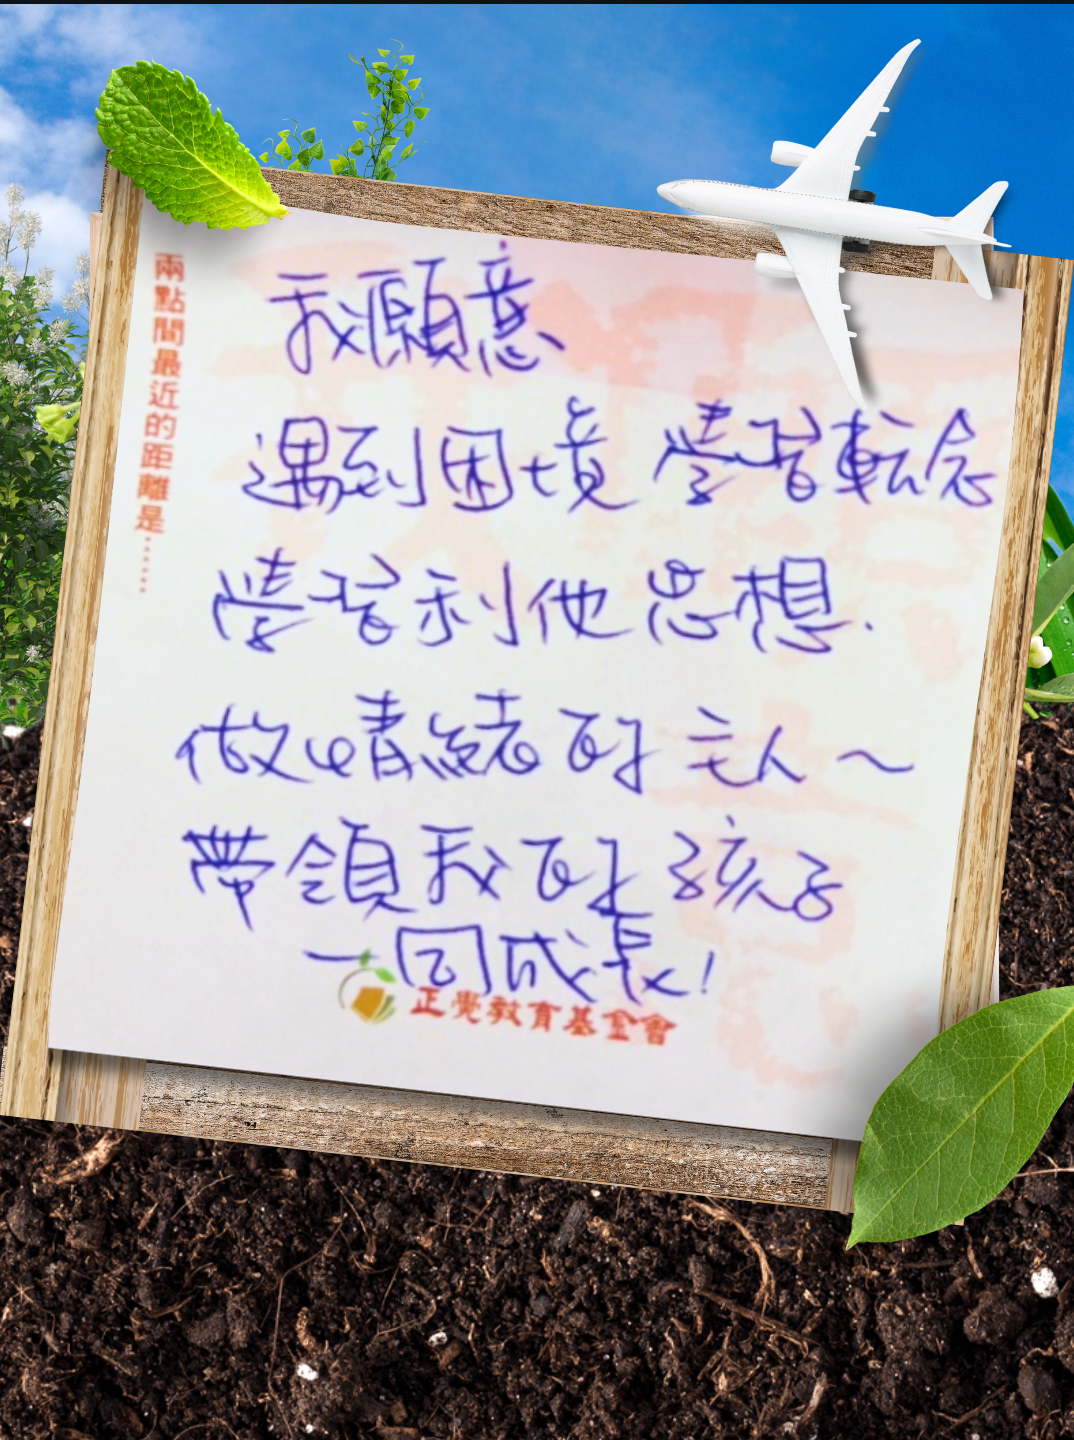 兩點間最近的距離是……
我願意
遇到困境 學習転念
學習利他思想.
做情緒的主人～
帶領我的孩子
一同成長!
正覺教育基金會